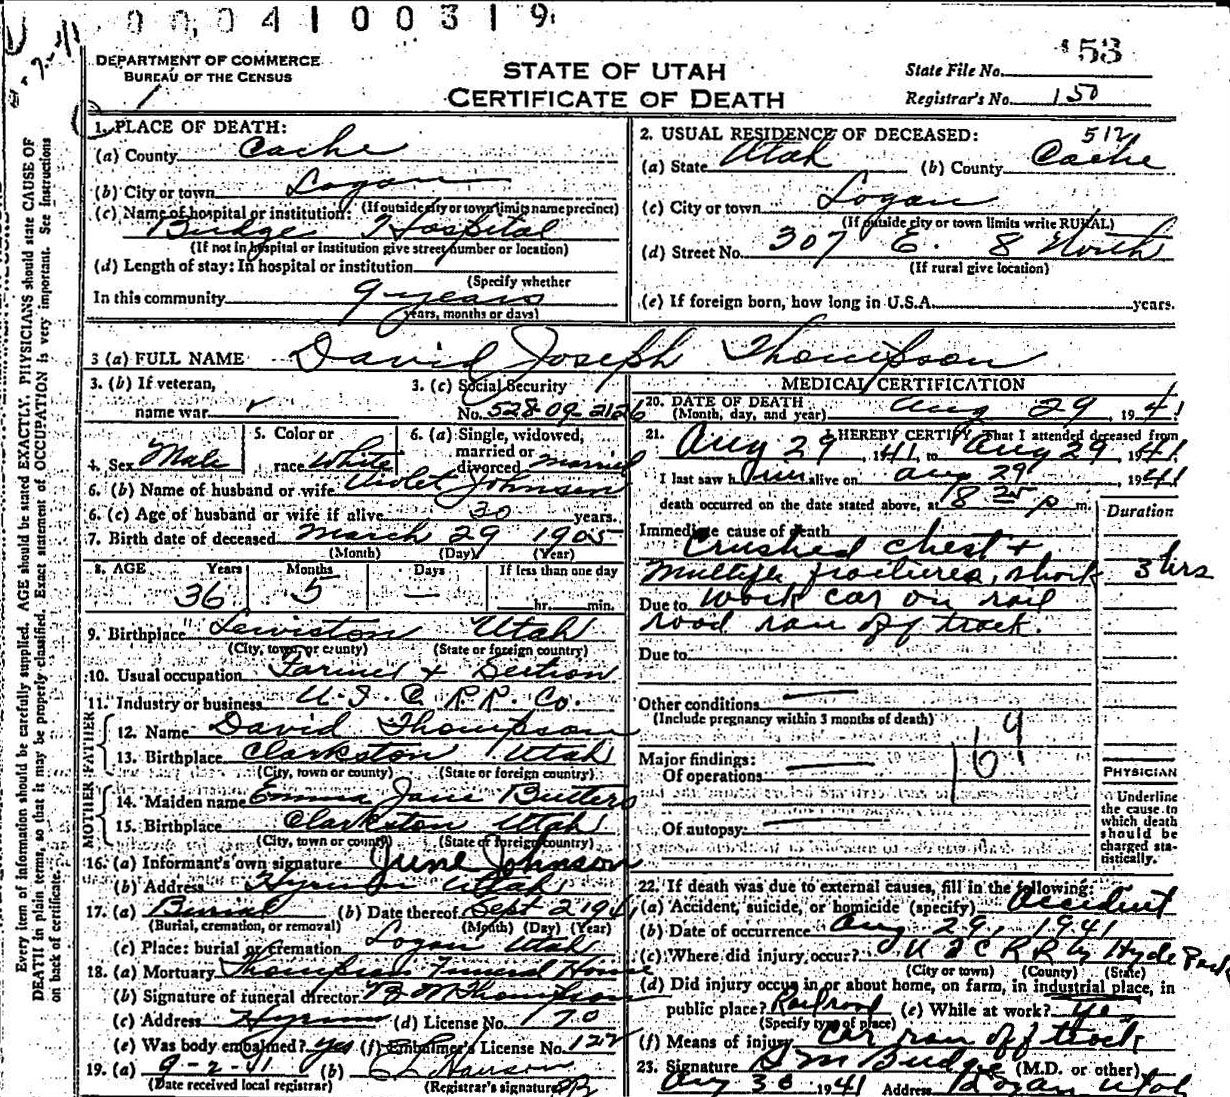 0 0 0 4 1 0 0 3 1 9
DEPARTMENT OF COMMERCE
BUREAU OF THE CENSUS
STATE OF UTAH
CERTIFICATE OF DEATH
53
State File No.
Registrar's No. 150
Every item of information should be carefully supplied. AGE should be stated EXACTLY. PHYSICIANS should state CAUSE OF
DEATH in plain terms, so that it may be properly classified. Exact statement of OCCUPATION is very important. See Instructions
on back of certificate.
1. PLACE OF DEATH:
(a) County Cache
(b) City or town Logan
(If outside city or town limits name precinct)
(c) Name of hospital or institution:
Budge Hospital
(If not in hospital or institution give street number or location)
(d) Length of stay: In hospital or institution
(Specify whether
In this community 9 years
years, months or days)
2. USUAL RESIDENCE OF DECEASED:
(a) State Utah (b) County Cache
(c) City or town Logan
(If outside city or town limits write RURAL)
(d) Street No. 307 E. 8 North
(If rural give location)
(e) If foreign born, how long in U.S.A. years.
3 (a) FULL NAME David Joseph Thompson
3. (b) If veteran,
name war
3. (c) Social Security
No. 528-09-2126
4. Sex Male
5. Color or
race White
6. (a) Single, widowed,
married or
divorced married
6. (b) Name of husband or wife Violet Johnson
6. (c) Age of husband or wife if alive 30 years.
7. Birth date of deceased March 29 1905
(Month) (Day) (Year)
8. AGE Years Months Days If less than one day
36 5 — hr. min.
9. Birthplace Lewiston Utah
(City, town, or county) (State or foreign country)
10. Usual occupation Farmer & Section
11. Industry or business U. I. C. R.R. Co.
FATHER
12. Name David Thompson
13. Birthplace Clarkston Utah
(City, town or county) (State or foreign country)
MOTHER
14. Maiden name Emma Jane Butters
15. Birthplace Clarkston Utah
(City, town or county) (State or foreign country)
16. (a) Informant's own signature June Johnson
(b) Address Hyrum Utah
17. (a) Burial (b) Date thereof Sept 2 1941
(Burial, cremation, or removal) (Month) (Day) (Year)
(c) Place: burial or cremation Logan Utah
18. (a) Mortuary Thompson Funeral Home
(b) Signature of funeral director B M Thompson
(c) Address Hyrum (d) License No. 170
(e) Was body embalmed? yes (f) Embalmer's License No. 122
19. (a) 9-2-41 (b)
(Date received local registrar) (Registrar's signature)
MEDICAL CERTIFICATION
20. DATE OF DEATH
(Month, day, and year) Aug 29, 1941
21. I HEREBY CERTIFY, That I attended deceased from
Aug 29, 1941, to Aug 29 1941
I last saw him alive on Aug 29 1941
death occurred on the date stated above, at 8 25 p m.
Duration
Immediate cause of death
Crushed chest +
Multiple fractures, shock 3 hrs
Due to Work car on rail
road ran off track.
Due to
Other conditions
(Include pregnancy within 3 months of death)
169
Major findings:
Of operations
Of autopsy
PHYSICIAN
Underline
the cause to
which death
should be
charged sta-
tistically.
22. If death was due to external causes, fill in the following:
(a) Accident, suicide, or homicide (specify) Accident
(b) Date of occurrence Aug 29, 1941
(c) Where did injury occur? U I C R R by Hyde Park
(City or town) (County) (State)
(d) Did injury occur in or about home, on farm, in industrial place, in
public place? Railroad (e) While at work? yes
(Specify type of place)
(f) Means of injury Car ran off track
23. Signature S M Budge (M.D. or other)
Aug 30 1941 Address Logan Utah